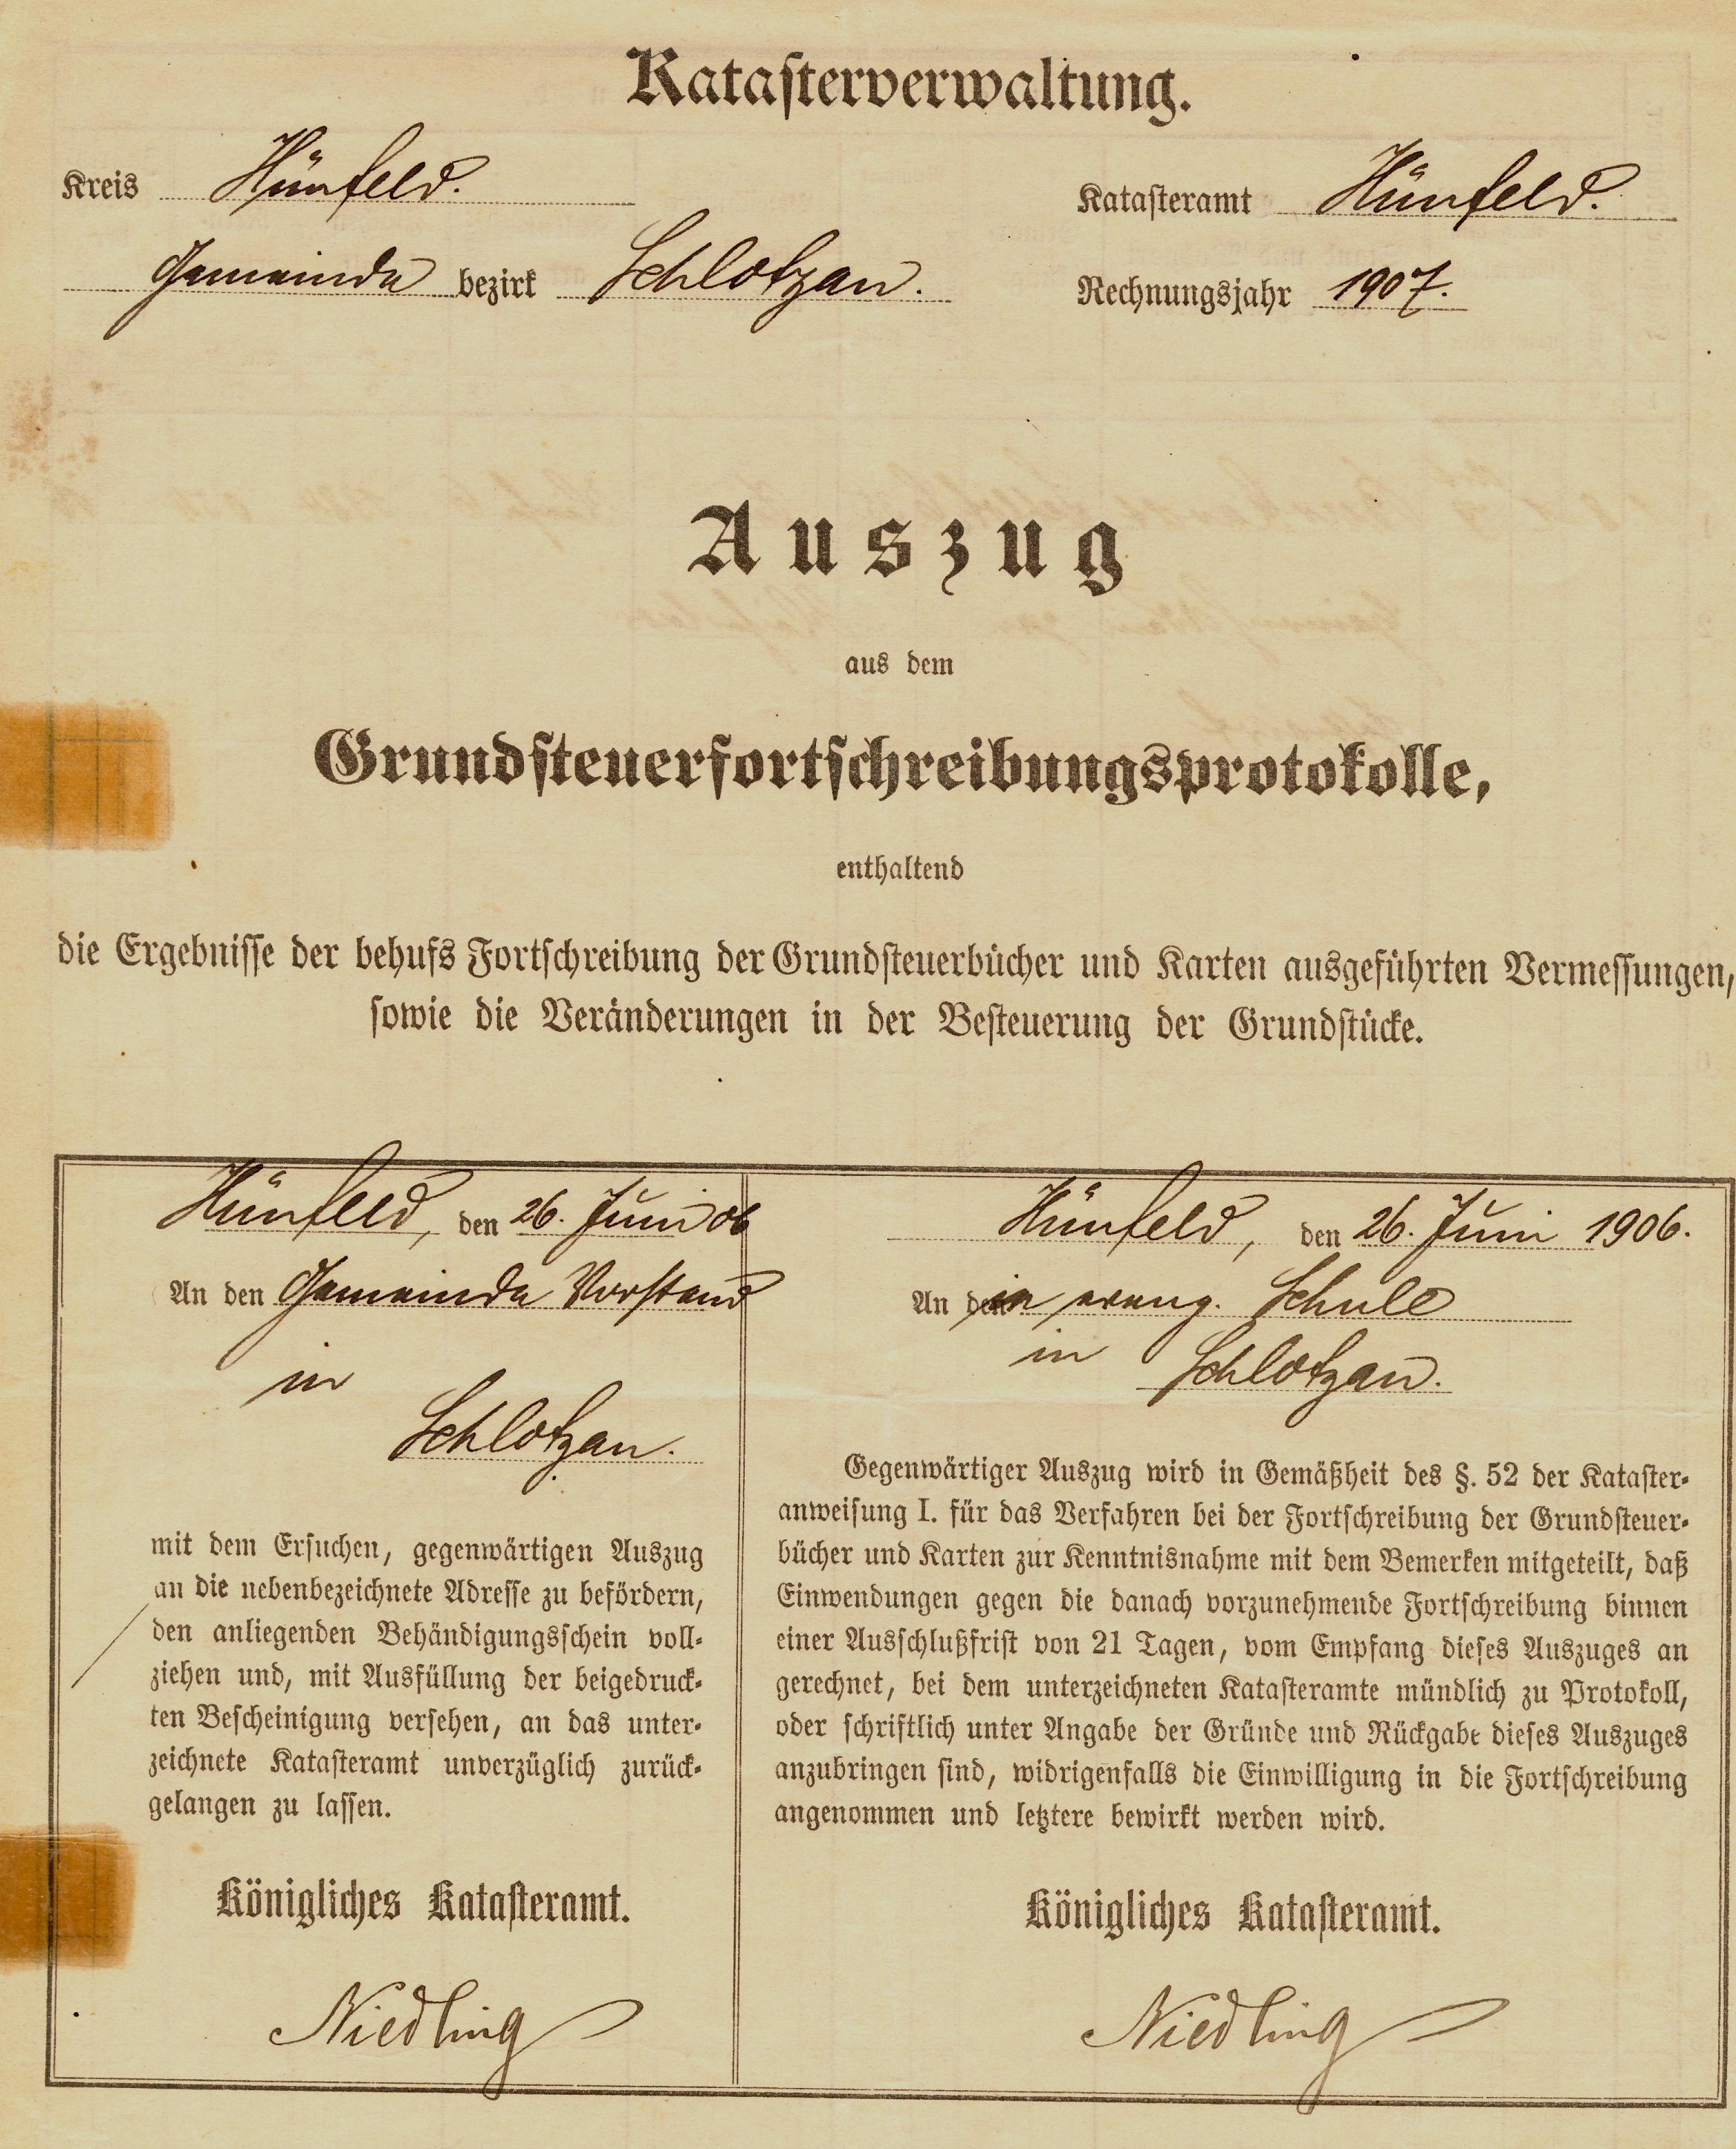 Katasterverwaltung.
Kreis Hünfeld.
Katasteramt Hünfeld.
Gemeinde bezirk Schlotzau.
Rechnungsjahr 1907.
Auszug
aus dem
Grundsteuerfortschreibungsprotokolle,
enthaltend
die Ergebnisse der behufs Fortschreibung der Grundsteuerbücher und Karten ausgeführten Vermessungen,
sowie die Veränderungen in der Besteuerung der Grundstücke.
Hünfeld, den 26. Juni 06
An den Gemeinde Vorstand
in
Schlotzau.
mit dem Ersuchen, gegenwärtigen Auszug
an die nebenbezeichnete Adresse zu befördern,
den anliegenden Behändigungsschein voll-
ziehen und, mit Ausfüllung der beigedruck-
ten Bescheinigung versehen, an das unter-
zeichnete Katasteramt unverzüglich zurück-
gelangen zu lassen.
Königliches Katasteramt.
Niedling
Hünfeld, den 26. Juni 1906.
An die evang. Schule
in Schlotzau.
Gegenwärtiger Auszug wird in Gemäßheit des §. 52 der Kataster-
anweisung I. für das Verfahren bei der Fortschreibung der Grundsteuer-
bücher und Karten zur Kenntnisnahme mit dem Bemerken mitgeteilt, daß
Einwendungen gegen die danach vorzunehmende Fortschreibung binnen
einer Ausschlußfrist von 21 Tagen, vom Empfang dieses Auszuges an
gerechnet, bei dem unterzeichneten Katasteramte mündlich zu Protokoll,
oder schriftlich unter Angabe der Gründe und Rückgabe dieses Auszuges
anzubringen sind, widrigenfalls die Einwilligung in die Fortschreibung
angenommen und letztere bewirkt werden wird.
Königliches Katasteramt.
Niedling